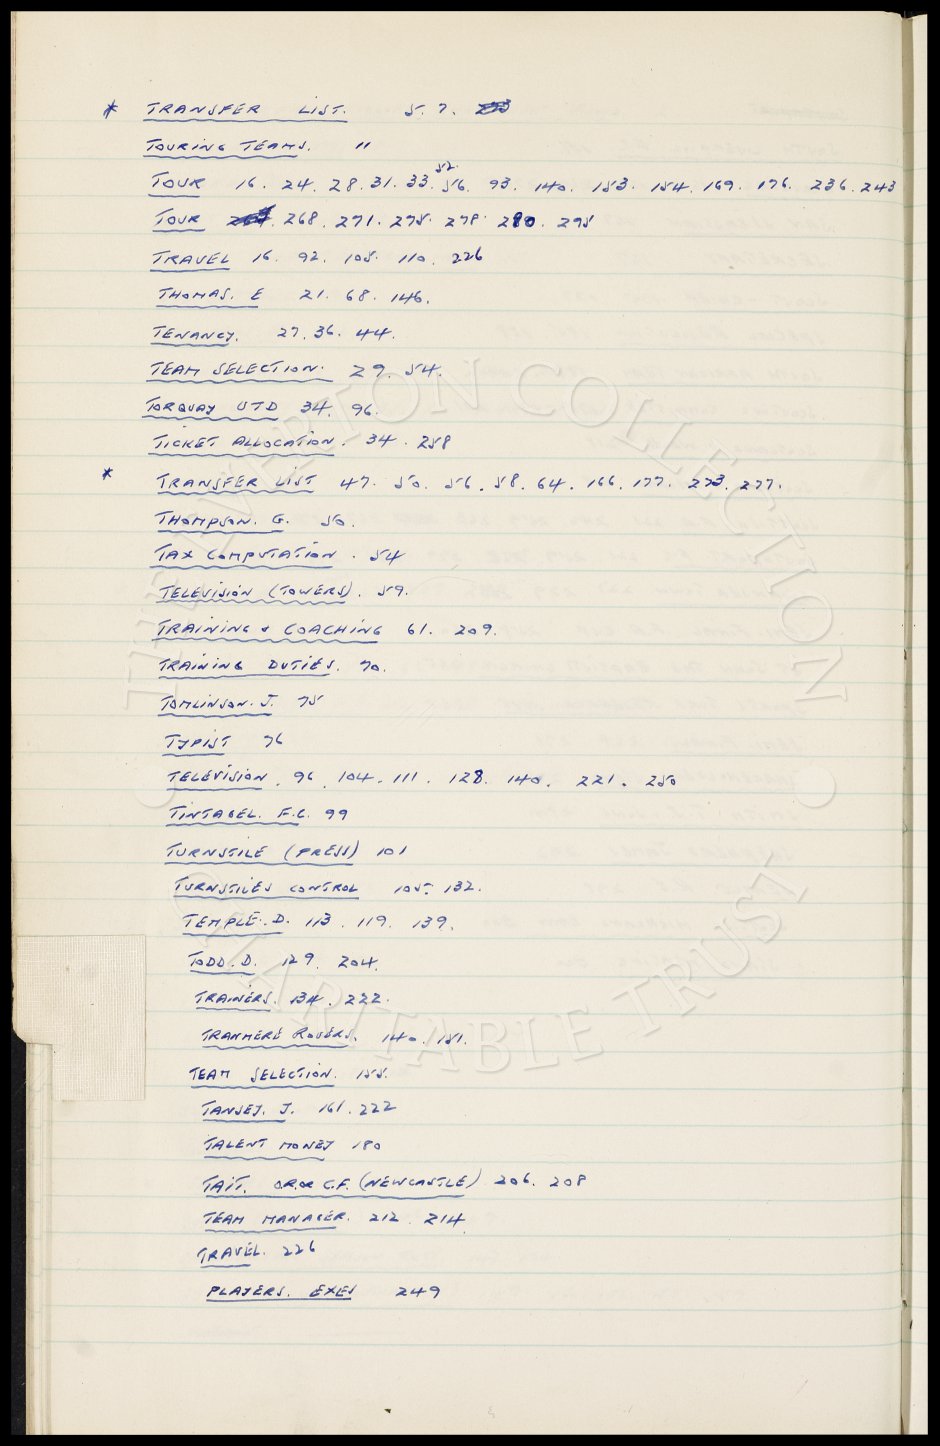 * TRANSFER LIST. 5. 7.
TOURING TEAMS. "
TOUR 16. 24. 28. 31. 33. 52. 56. 93. 140. 153. 154. 169. 176. 236. 243
TOUR 268. 271. 275. 278. 280. 295
TRAVEL 16. 92. 105. 110. 226
THOMAS. E 21. 68. 146.
TENANCY. 27. 36. 44.
TEAM SELECTION. 29. 54.
TORQUAY UTD 34. 96.
TICKET ALLOCATION. 34. 258
* TRANSFER LIST 47. 50. 56. 58. 64. 166. 177. 273. 277.
THOMPSON. G. 50.
TAX COMPUTATION. 54
TELEVISION (TOWERS). 59.
TRAINING & COACHING 61. 209.
TRAINING DUTIES. 70.
TOMLINSON. J. 75
TYPIST 76
TELEVISION. 96. 104. 111. 128. 140. 221. 250
TINTAGEL. F.C. 99
TURNSTILE (PRESS) 101
TURNSTILES CONTROL 105. 132.
TEMPLE. D. 113. 119. 139.
TODD. D. 129. 204.
TRAINERS. 134. 222.
TRANMERE ROVERS. 140. 151.
TEAM SELECTION. 155.
TANSEY. J. 161. 222
TALENT MONEY 180
TAIT. OR. OR C.F. (NEWCASTLE) 206. 208
TEAM MANAGER. 212. 214.
TRAVEL. 226
PLAYERS. EXES 249
THE EVERTON COLLECTION
CHARITABLE TRUST